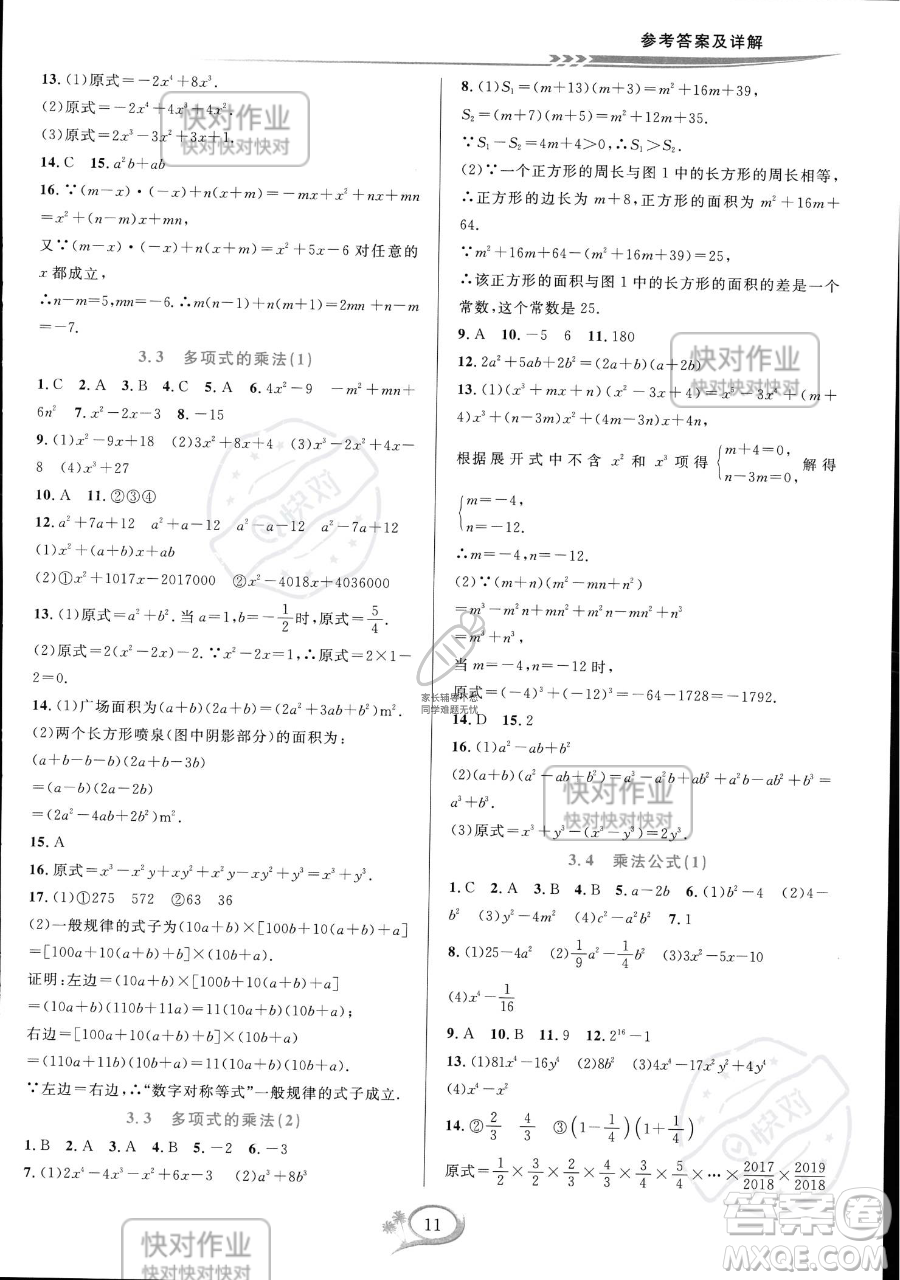 参考答案及详解
13. (1)原式=-2x⁴+8x³.
(2)原式=-2x⁴+4x³+4x².
(3)原式=2x³-3x²+3x+1.
14. C 15. a²b+ab
16. ∵(m-x)·(-x)+n(x+m)=-mx+x²+nx+mn
=x²+(n-m)x+mn,
又∵(m-x)·(-x)+n(x+m)=x²+5x-6 对任意的
x 都成立,
∴n-m=5,mn=-6,∴m(n-1)+n(m+1)=2mn+n-m=
-7.
3.3 多项式的乘法(1)
1. C 2. A 3. B 4. C 5. A 6. 4x²-9 -m²+mn+
6n² 7. x²-2x-3 8. -15
9. (1)x²-9x+18 (2)3x²+8x+4 (3)x³-2x²+4x-
8 (4)x³+27
10. A 11. ②③④
12. a²+7a+12 a²+a-12 a²-a-12 a²-7a+12
(1)x²+(a+b)x+ab
(2)①x²+1017x-2017000 ②x²-4018x+4036000
13. (1)原式=a²+b². 当 a=1,b=-1/2时,原式=5/4.
(2)原式=2(x²-x-2)-2. 当 x²-x=2时,原式=2×1-
2=0.
14. (1)广场面积为(a+b)(2a+b)=(2a²+3ab+b²)m².
(2)两个长方形喷泉(图中阴影部分)的面积为:
(a+b-b-b)(2a+b-3b)
=(a-b)(2a-2b)
=(2a²-4ab+2b²)m².
15. A
16. 原式=x³-x²y+xy²+x²y-xy²+y³=x³+y³
17. (1)①275 572 ②63 36
(2)一般规律的式子为(10a+b)×[100b+10(a+b)+a]
=[100a+10(a+b)+b]×(10b+a).
证明:左边=(10a+b)×[100b+10(a+b)+a]
=(10a+b)(110b+11a)=11(10a+b)(10b+a);
右边=[100a+10(a+b)+b]×(10b+a)
=(110a+11b)(10b+a)=11(10a+b)(10b+a).
∵左边=右边,∴“数字对称等式”一般规律的式子成立.
3.3 多项式的乘法(2)
1. B 2. A 3. A 4. B 5. -2 6. -3
7. (1)2x⁴-4x³-x²+6x-3 (2)a³+8b³
8. (1)S₁=(m+13)(m+3)=m²+16m+39,
S₂=(m+7)(m+5)=m²+12m+35.
∵S₁-S₂=4m+4>0,∴S₁>S₂.
(2)∵一个正方形的周长与图1中的长方形的周长相等,
∴正方形的边长为 m+8,正方形的面积为 m²+16m+
64.
∵m²+16m+64-(m²+16m+39)=25,
∴该正方形的面积与图1中的长方形的面积的差是一个
常数,这个常数是25.
9. A 10. -5 6 11. 180
12. 2a²+5ab+2b²=(2a+b)(a+2b)
13. (1)(x³+mx+n)(x²-3x+4)=x⁵-3x⁴+(m+
4)x³+(n-3m)x²+(4m-3n)x+4n,
根据展开式中不含 x² 和 x³ 项得{m+4=0, n-3m=0, 解得
{m=-4, n=-12.
∴m=-4,n=-12.
(2)∵(m+n)(m²-mn+n²)
=m³-m²n+mn²+m²n-mn²+n³
=m³+n³,
当 m=-4,n=-12时,
原式=(-4)³+(-12)³=-64-1728=-1792.
14. D 15. 2
16. (1)a²-ab+b²
(2)(a+b)(a²-ab+b²)=a³-a²b+ab²+a²b-ab²+b³=
a³+b³.
(3)原式=x³+y³-(x³-y³)=2y³.
3.4 乘法公式(1)
1. C 2. A 3. B 4. B 5. a-2b 6. (1)x²-1 (2)4-
b² (3)y²-4m² (4)c²-a²b² 7. 1
8. (1)25-4a² (2)1/9a²-1/4b² (3)-5x-10
(4)x⁴-1/16
9. A 10. B 11. 9 12. 2¹⁶-1
13. (1)81x⁴-16y⁴ (2)5a²-b² (3)8b²
(4)x⁴-x²
14. ②2/3 4/3 ③(1-1/4)(1+1/4)
原式=1/2×3/2×2/3×4/3×3/4×5/4×…×2017/2018×2019/2018
11
快对作业
快对作业 快对快对快对
快对
家长辅导不愁
同学难题无忧
答案圈
MXQE.COM